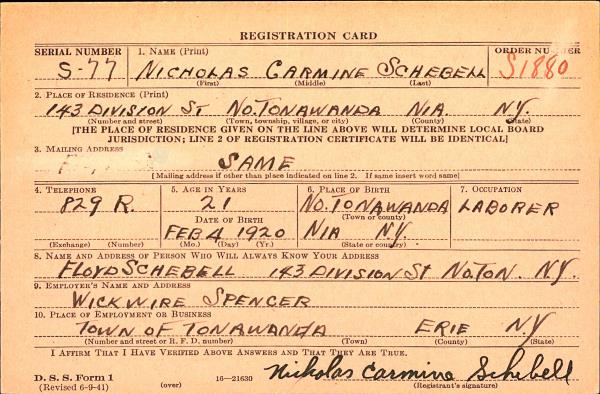 REGISTRATION CARD
SERIAL NUMBER 1. NAME (Print) ORDER NUMBER
S-77 NICHOLAS CARMINE SCHEBELL S1880
(First) (Middle) (Last)
2. PLACE OF RESIDENCE (Print)
143 DIVISION ST NO. TONAWANDA NIA. N.Y.
(Number and street) (Town, township, village, or city) (County) (State)
[THE PLACE OF RESIDENCE GIVEN ON THE LINE ABOVE WILL DETERMINE LOCAL BOARD
JURISDICTION; LINE 2 OF REGISTRATION CERTIFICATE WILL BE IDENTICAL]
3. MAILING ADDRESS
SAME
[Mailing address if other than place indicated on line 2. If same insert word same]
4. TELEPHONE 5. AGE IN YEARS 6. PLACE OF BIRTH 7. OCCUPATION
829 R. 21 NO. TONAWANDA LABORER
DATE OF BIRTH (Town or county)
FEB 4 1920 NIA N.Y.
(Exchange) (Number) (Mo.) (Day) (Yr.) (State or country)
8. NAME AND ADDRESS OF PERSON WHO WILL ALWAYS KNOW YOUR ADDRESS
FLOYD SCHEBELL 143 DIVISION ST NO. TON. N.Y.
9. EMPLOYER'S NAME AND ADDRESS
WICKWIRE SPENCER
10. PLACE OF EMPLOYMENT OR BUSINESS
TOWN OF TONAWANDA ERIE N.Y
(Number and street or R. F. D. number) (Town) (County) (State)
I AFFIRM THAT I HAVE VERIFIED ABOVE ANSWERS AND THAT THEY ARE TRUE.
Nicholas Carmine Schebell
D. S. S. Form 1 16—21630 (Registrant's signature)
(Revised 6-9-41) (over)